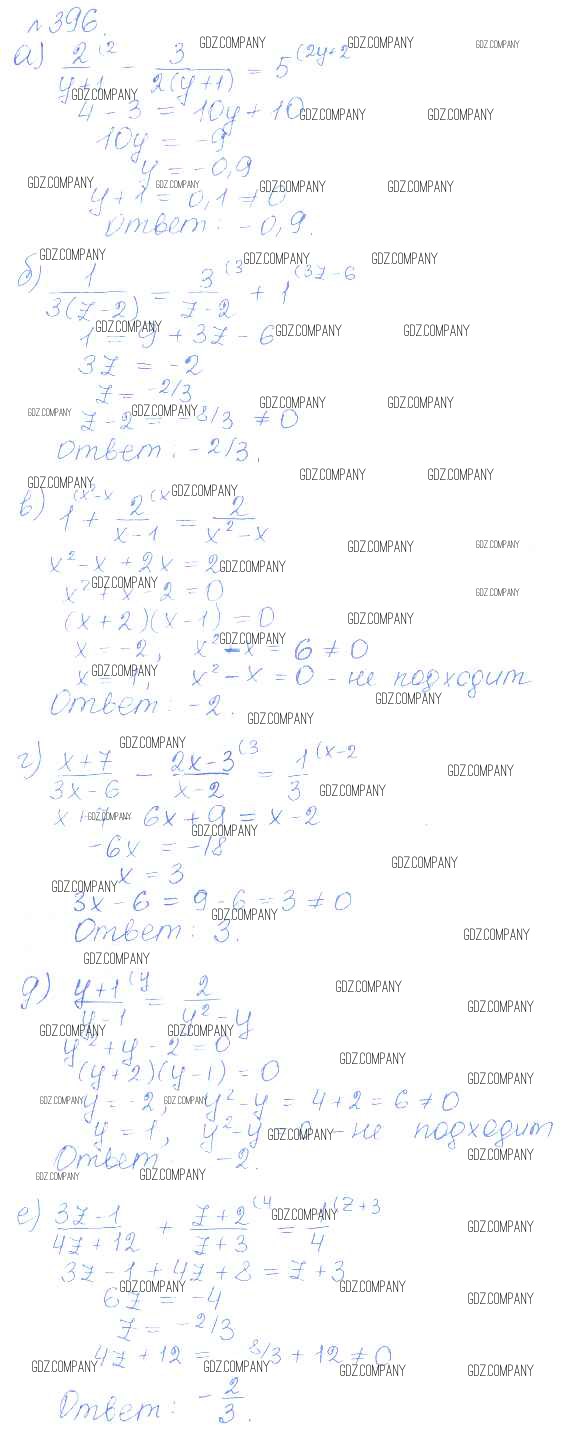 №396.
а) 2(2 / y+1 - 3 / 2(y+1) = 5(2y+2
4 - 3 = 10y + 10
10y = -9
y = -0,9
y + 1 = 0,1 ≠ 0
Ответ: -0,9.
б) 1 / 3(z-2) = 3(3 / z-2 + 1(3z-6
1 = 9 + 3z - 6
3z = -2
z = -2/3
z - 2 = -8/3 ≠ 0
Ответ: -2/3.
в) 1(x²-x + 2(x / x-1 = 2 / x²-x
x² - x + 2x = 2
x² + x - 2 = 0
(x+2)(x-1) = 0
x = -2, x² - x = 6 ≠ 0
x = 1, x² - x = 0 - не подходит
Ответ: -2.
г) x+7 / 3x-6 - 2x-3(3 / x-2 = 1(x-2 / 3
x + 7 - 6x + 9 = x - 2
-6x = -18
x = 3
3x - 6 = 9 - 6 = 3 ≠ 0
Ответ: 3.
д) y+1(y / y-1 = 2 / y²-y
y² + y - 2 = 0
(y+2)(y-1) = 0
y = -2, y² - y = 4 + 2 = 6 ≠ 0
y = 1, y² - y = 0 - не подходит
Ответ: -2.
е) 3z-1 / 4z+12 + z+2(4 / z+3 = 1(z+3 / 4
3z - 1 + 4z + 8 = z + 3
6z = -4
z = -2/3
4z + 12 = 8/3 + 12 ≠ 0
Ответ: -2/3.
GDZ.COMPANY